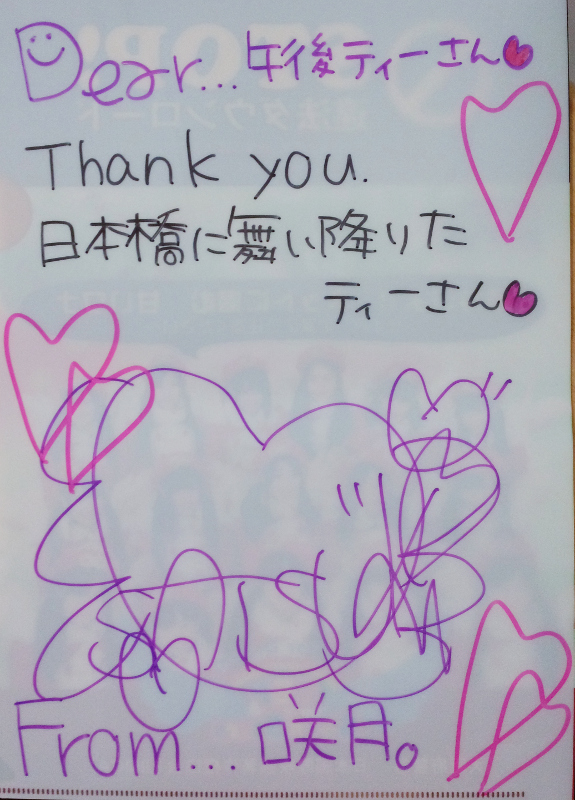 Dear... 午後ティーさん
Thank you.
日本橋に舞い降りた
ティーさん
From... 咲月。